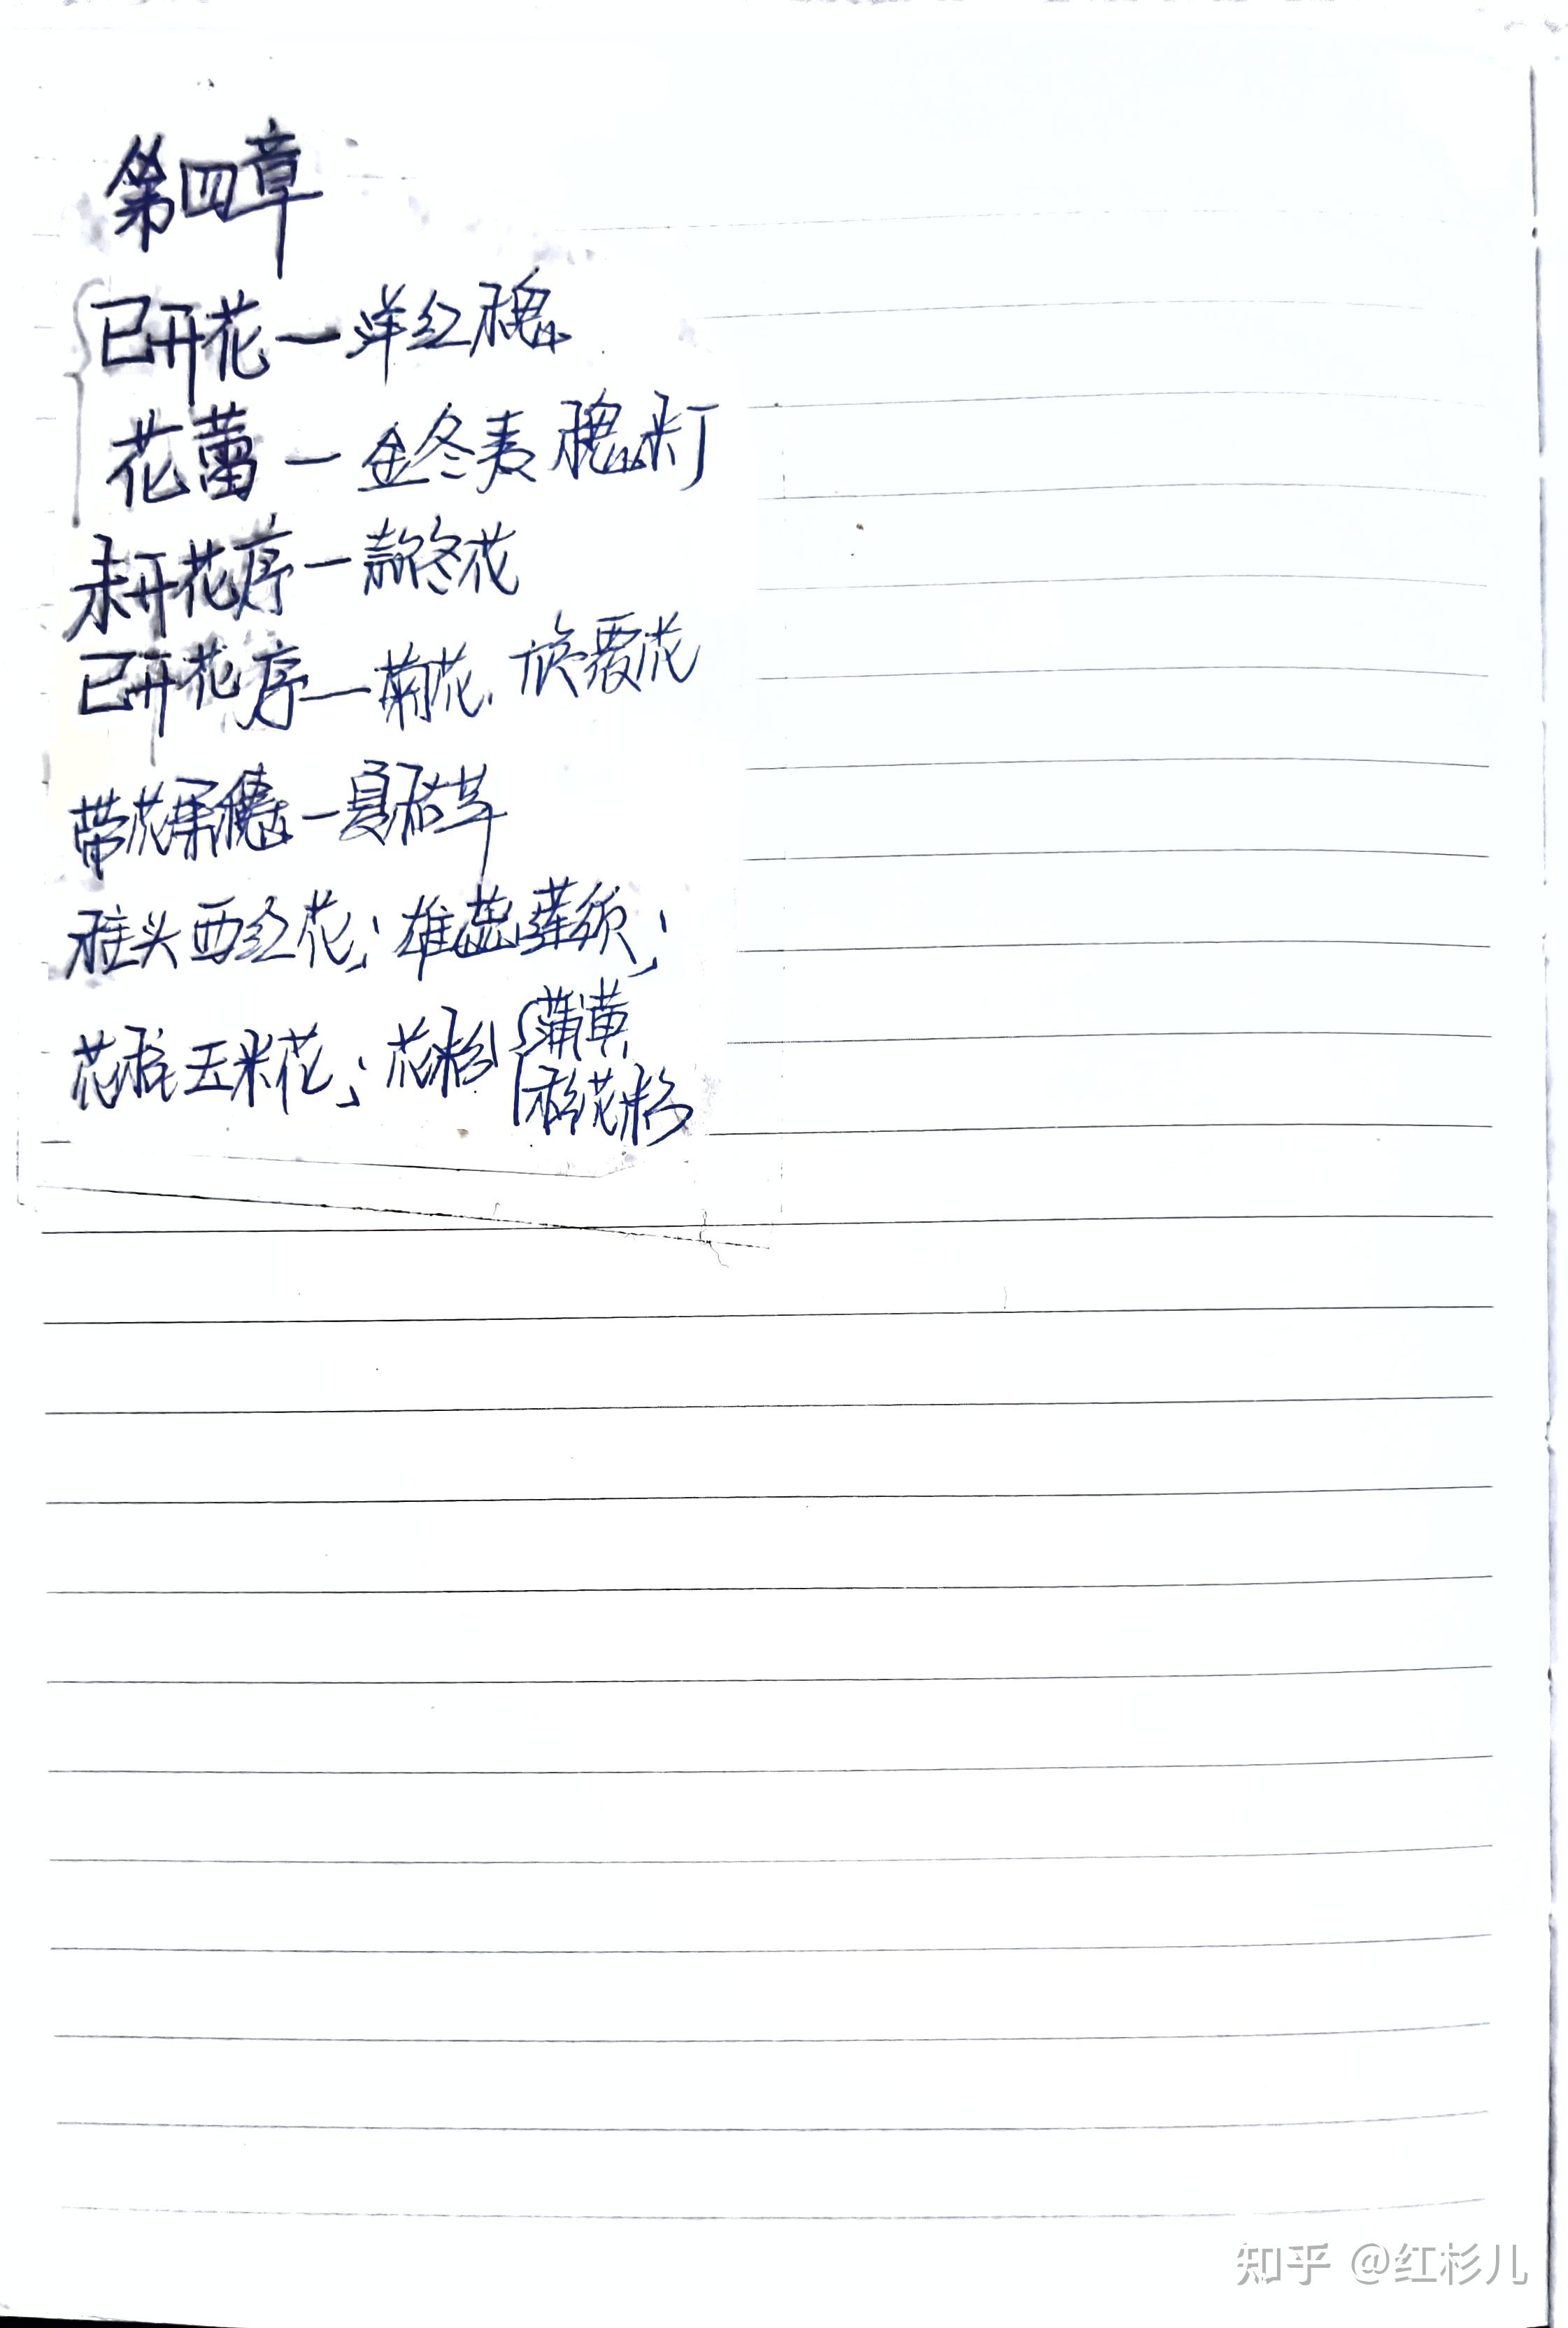 第四章
已开花一洋红槐
花蕾一金冬麦槐米丁
未开花序一款冬花
已开花序一菊花.旋覆花
带花果穗一夏枯草
柱头西红花;雄蕊莲须;
花柱玉米花;花粉{蒲黄
松花粉
知乎 @红杉儿